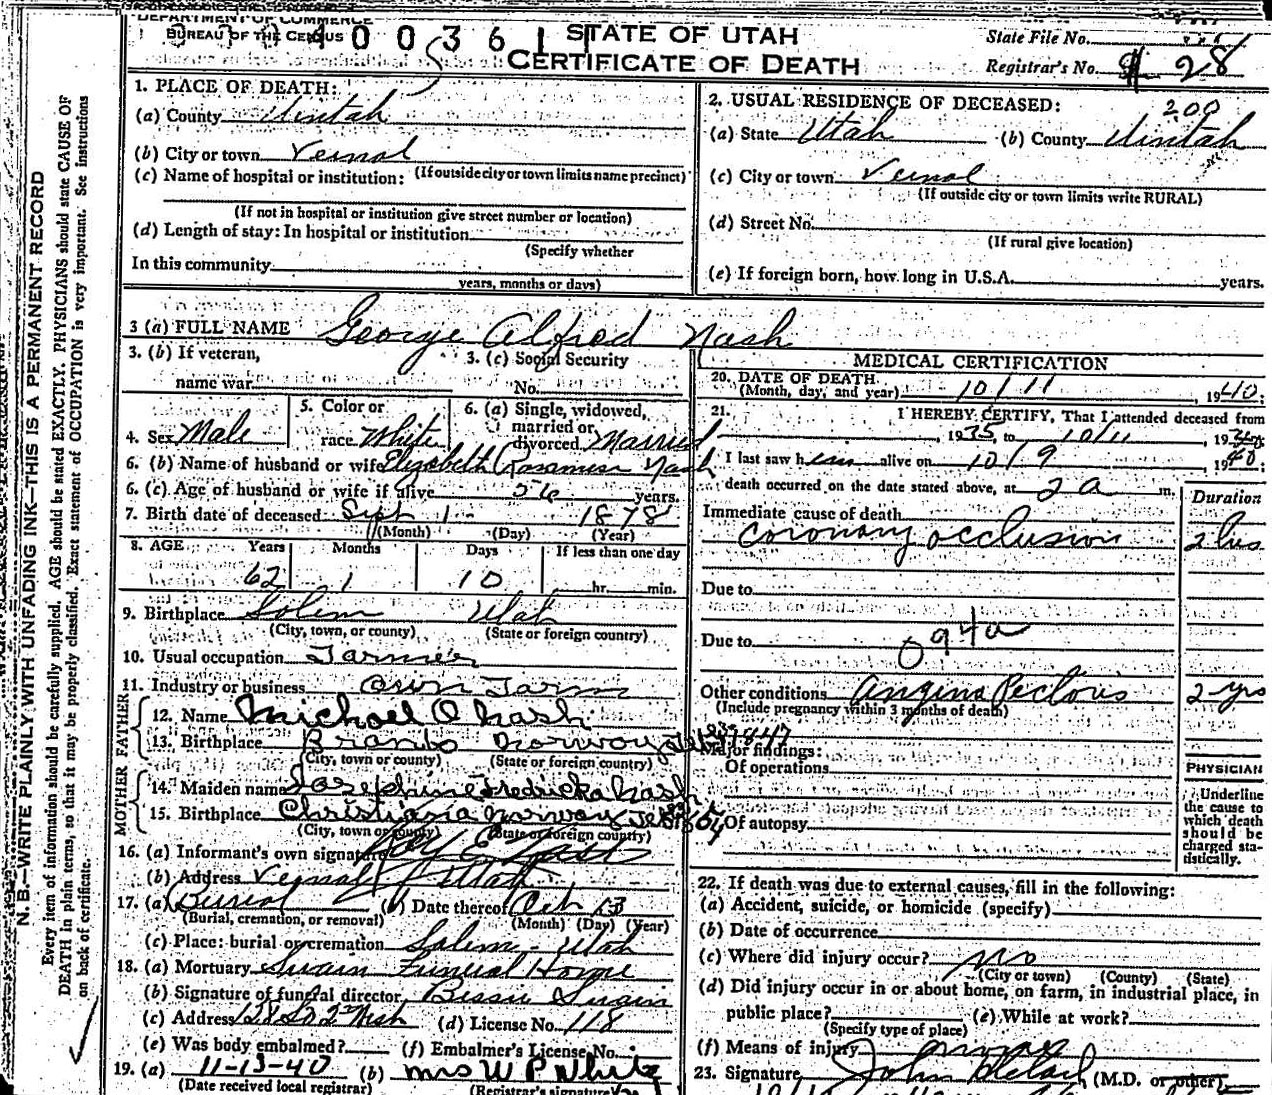 DEPARTMENT OF COMMERCE
BUREAU OF THE CENSUS
0 0 3 6 1 1
STATE OF UTAH
CERTIFICATE OF DEATH
State File No.
Registrar's No. 28
N. B.—WRITE PLAINLY WITH UNFADING INK—THIS IS A PERMANENT RECORD
Every item of information should be carefully supplied. AGE should be stated EXACTLY. PHYSICIANS should state CAUSE OF
DEATH in plain terms, so that it may be properly classified. Exact statement of OCCUPATION is very important. See instructions
on back of certificate.
1. PLACE OF DEATH:
(a) County Uintah
(b) City or town Vernal
(If outside city or town limits name precinct)
(c) Name of hospital or institution:
(If not in hospital or institution give street number or location)
(d) Length of stay: In hospital or institution
(Specify whether
In this community
years, months or days)
2. USUAL RESIDENCE OF DECEASED:
200
(a) State Utah (b) County Uintah
(c) City or town Vernal
(If outside city or town limits write RURAL)
(d) Street No.
(If rural give location)
(e) If foreign born, how long in U.S.A. years.
3 (a) FULL NAME George Alfred Nash
3. (b) If veteran, name war
3. (c) Social Security No.
4. Sex Male
5. Color or race White
6. (a) Single, widowed, married or divorced Married
6. (b) Name of husband or wife Elizabeth Nash
6. (c) Age of husband or wife if alive 56 years.
7. Birth date of deceased Sept 1 1878
(Month) (Day) (Year)
8. AGE Years Months Days If less than one day
62 1 10 hr. min.
9. Birthplace Salem Utah
(City, town, or county) (State or foreign country)
10. Usual occupation Farmer
11. Industry or business Own Farm
FATHER
12. Name Michael O Nash
13. Birthplace Norway
(City, town or county) (State or foreign country)
MOTHER
14. Maiden name Josephine Fredricka Nash
15. Birthplace Christiania Norway
(City, town or county) (State or foreign country)
16. (a) Informant's own signature Nash
(b) Address Vernal Utah
17. (a) Burial (b) Date thereof Oct 13
(Burial, cremation, or removal) (Month) (Day) (Year)
(c) Place: burial or cremation Salem - Utah
18. (a) Mortuary Swain Funeral Home
(b) Signature of funeral director Bessie Swain
(c) Address (d) License No. 118
(e) Was body embalmed? (f) Embalmer's License No.
19. (a) 11-13-40 (b) Mrs W P White
(Date received local registrar) (Registrar's signature)
MEDICAL CERTIFICATION
20. DATE OF DEATH
(Month, day, and year) 10/11, 1940;
21. I HEREBY CERTIFY, That I attended deceased from
, 1935 to 10/11, 1940
I last saw him alive on 10/9, 1940;
death occurred on the date stated above, at 2 a m.
Duration
Immediate cause of death
coronary occlusion 2 hrs
Due to
Due to
094a
Other conditions Angina Pectoris 2 yrs
(Include pregnancy within 3 months of death)
Major findings:
Of operations
Of autopsy
PHYSICIAN
Underline
the cause to
which death
should be
charged sta-
tistically.
22. If death was due to external causes, fill in the following:
(a) Accident, suicide, or homicide (specify)
(b) Date of occurrence
(c) Where did injury occur? no
(City or town) (County) (State)
(d) Did injury occur in or about home, on farm, in industrial place, in
public place? (e) While at work?
(Specify type of place)
(f) Means of injury
23. Signature John (M.D. or other)